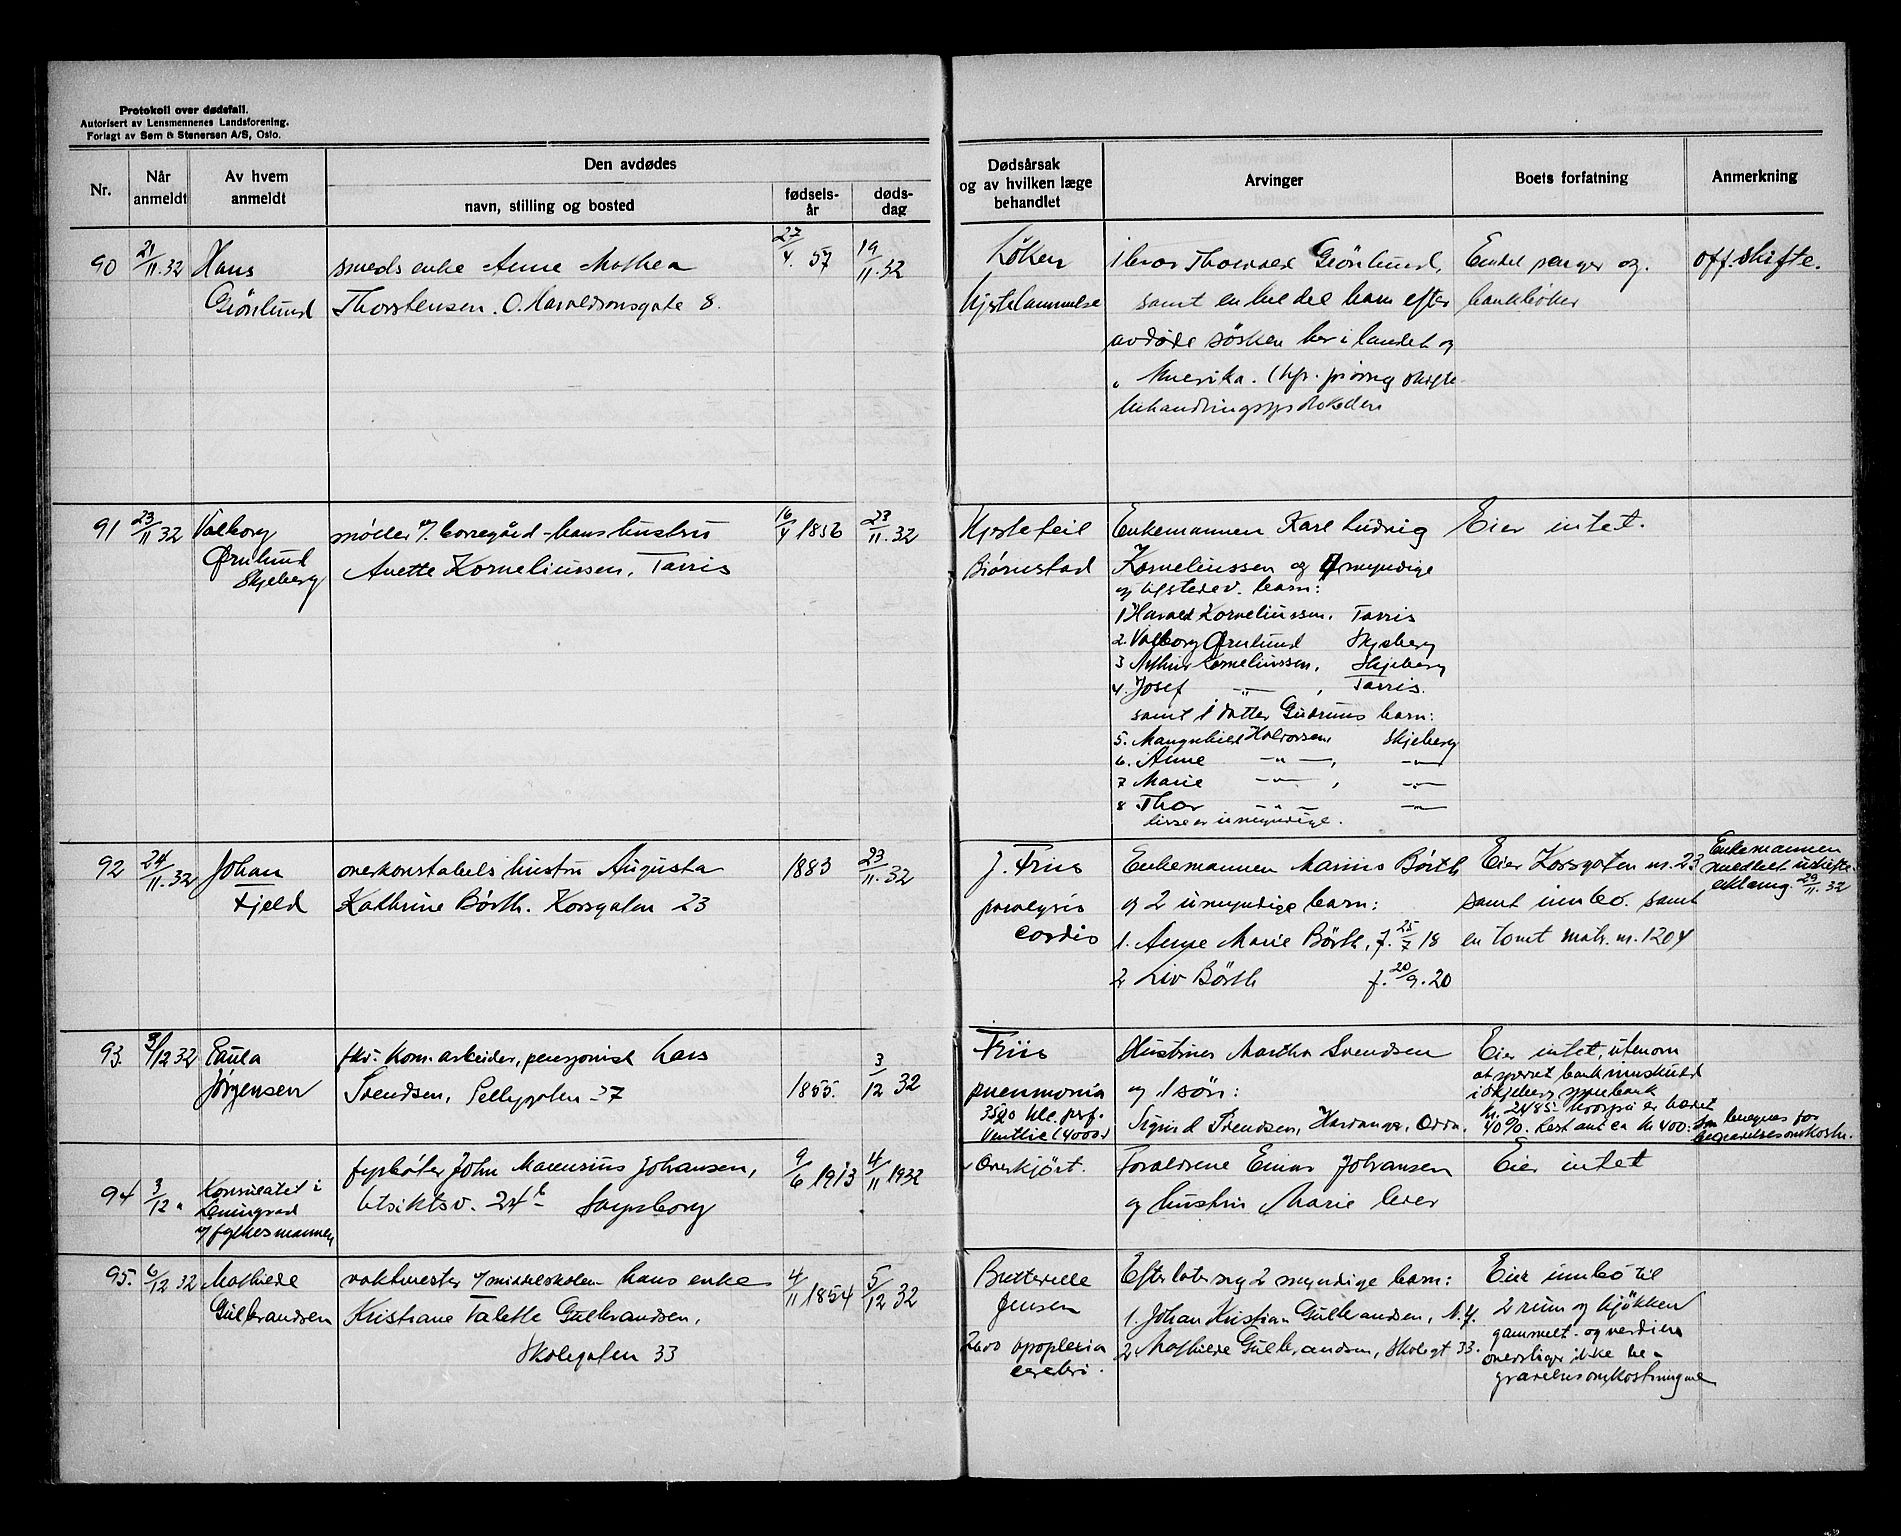 Protokoll over dødsfall.
Autorisert av Lensmennenes Landsforening.
Forlagt av Sem & Stenersen A/S, Oslo.
Nr.
Når anmeldt
Av hvem anmeldt
Den avdødes
navn, stilling og bosted
fødsels-år
døds-dag
Dødsårsak
og av hvilken læge
behandlet
Arvinger
Boets forfatning
Anmerkning
90 21/11.32 Hans
Grönlund
smeds enke Anne Mathea
Thorstensen. O. Haraldsonsgate 8.
27/4. 57 19/11.32
Løken
Hjertelammelse
1 bror Thorvald Grönlund,
samt en hel del barn efter
avdøde søsken her i landet og
i Amerika.
behandlingsprotokollen
Endel penger og
bankbøker
off. skifte.
91 23/11 32 Valborg
Ørnlund
Skjeberg
møller v/ Borregård - hans hustru
Anette Korneliussen, Tarris
16/4 1856 23/11.32
Hjertefeil
Bjørnstad
Enkemannen Karl Ludvig
Korneliussen og 4 myndige
og tilstedev. barn:
1 Harald Korneliussen, Tarris
2 Valborg Ørnlund Skjeberg
3 Arthur Korneliussen, Skjeberg
4. Josef —"— , Tarris.
samt 1 datter Gudruns barn:
5. Mangnhild Halvorsen, Skjeberg
6. Anne —"—, —"—
7 Marie —"— , —"—
8 Thor —"— —"—
disse er umyndige.
Eier intet.
92 24/11.32 Johan
Fjeld
overkonstabels hustru Augusta
Kathrine Börth. Korsgaten 23
1883 23/11.32
J. Friis
paralysis
cordis
Enkemannen Marius Börth
og 2 umyndige barn:
1. Anne Marie Börth, f. 25/7 18
2 Liv Börth f. 20/9. 20
Eier Korsgaten nr. 23
samt innbo. samt
en tomt matr. nr. 1204
Enkemannen
meddelt uskifte-
erklæring. 29/11.32
93. 3/12 32 Paula
Jørgensen
fhv. kom. arbeider, pensjonist Lars
Svendsen, Pellygaten 37
1855. 3/12 32
Friis
pneumonia
Hustruen Martha Svendsen
og 1 sön:
Sigurd Svendsen, Hardanger, Odda.
Eier intet, utenom
et sperret bankinnskudd
i Skjeberg sparebank
nr. 2485 hvorpå er hævet
40%. Rest ant ca kr 400.- Som beregnes for
begravelsesomkostn.
94 3/12 " Konsulatet i
Leningrad
v/ fylkesmannen
fyrbøter John Marensius Johansen,
Utsiktsv. 24b Sarpsborg
9/6 1913 4/11 1932
Overkjört.
Foreldrene Einar Johansen
og hustru Marie lever
Eier intet
95. 6/12 32 Mathilde
Gulbrandsen
vaktmester v/ middelskolen hans enke
Kristiane Valette Gulbrandsen,
Skolegaten 33
4/11 1854 5/12 32
Jensen
apoplexia
cerebri.
Efterlater sig 2 myndige barn:
1. Johan Kristian Gulbrandsen, N.Y.
2 Mathilde Gulbrandsen, Skolegt 33.
Eier innbo til
2 rum og kjøkken
gammelt. og verdien
overstiger ikke be-
gravelsesomkostningene